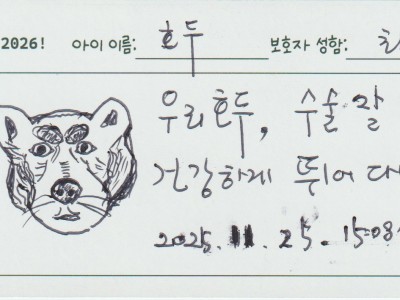 2026! 아이 이름: 호두 보호자 성함:
우리 호두, 수술 잘
건강하게 뛰어 다
2025. 11. 25. 15:08